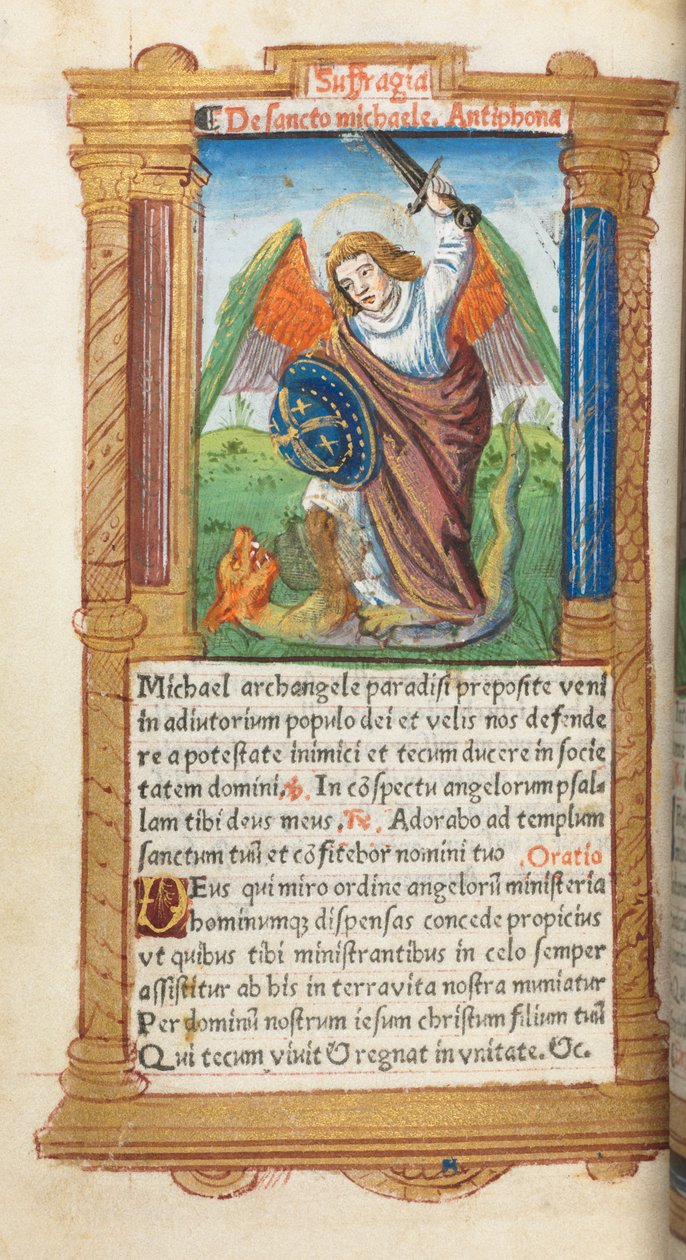 Suffragia
¶ De sancto michaele. Antiphona
Michael archangele paradisi preposite veni
in adiutorium populo dei et velis nos defende
re a potestate inimici et tecum ducere in socie
tatem domini. ℣. In cōspectu angelorum psal-
lam tibi deus meus. ℟. Adorabo ad templum
sanctum tuū et cōfitebor nomini tuo. Oratio
DEus qui miro ordine angelorū ministeria
hominumqꝫ dispensas concede propicius
vt quibus tibi ministrantibus in celo semper
assistitur ab his in terra vita nostra muniatur
Per dominū nostrum iesum christum filium tuū
Qui tecum viuit & regnat in vnitate. &c.